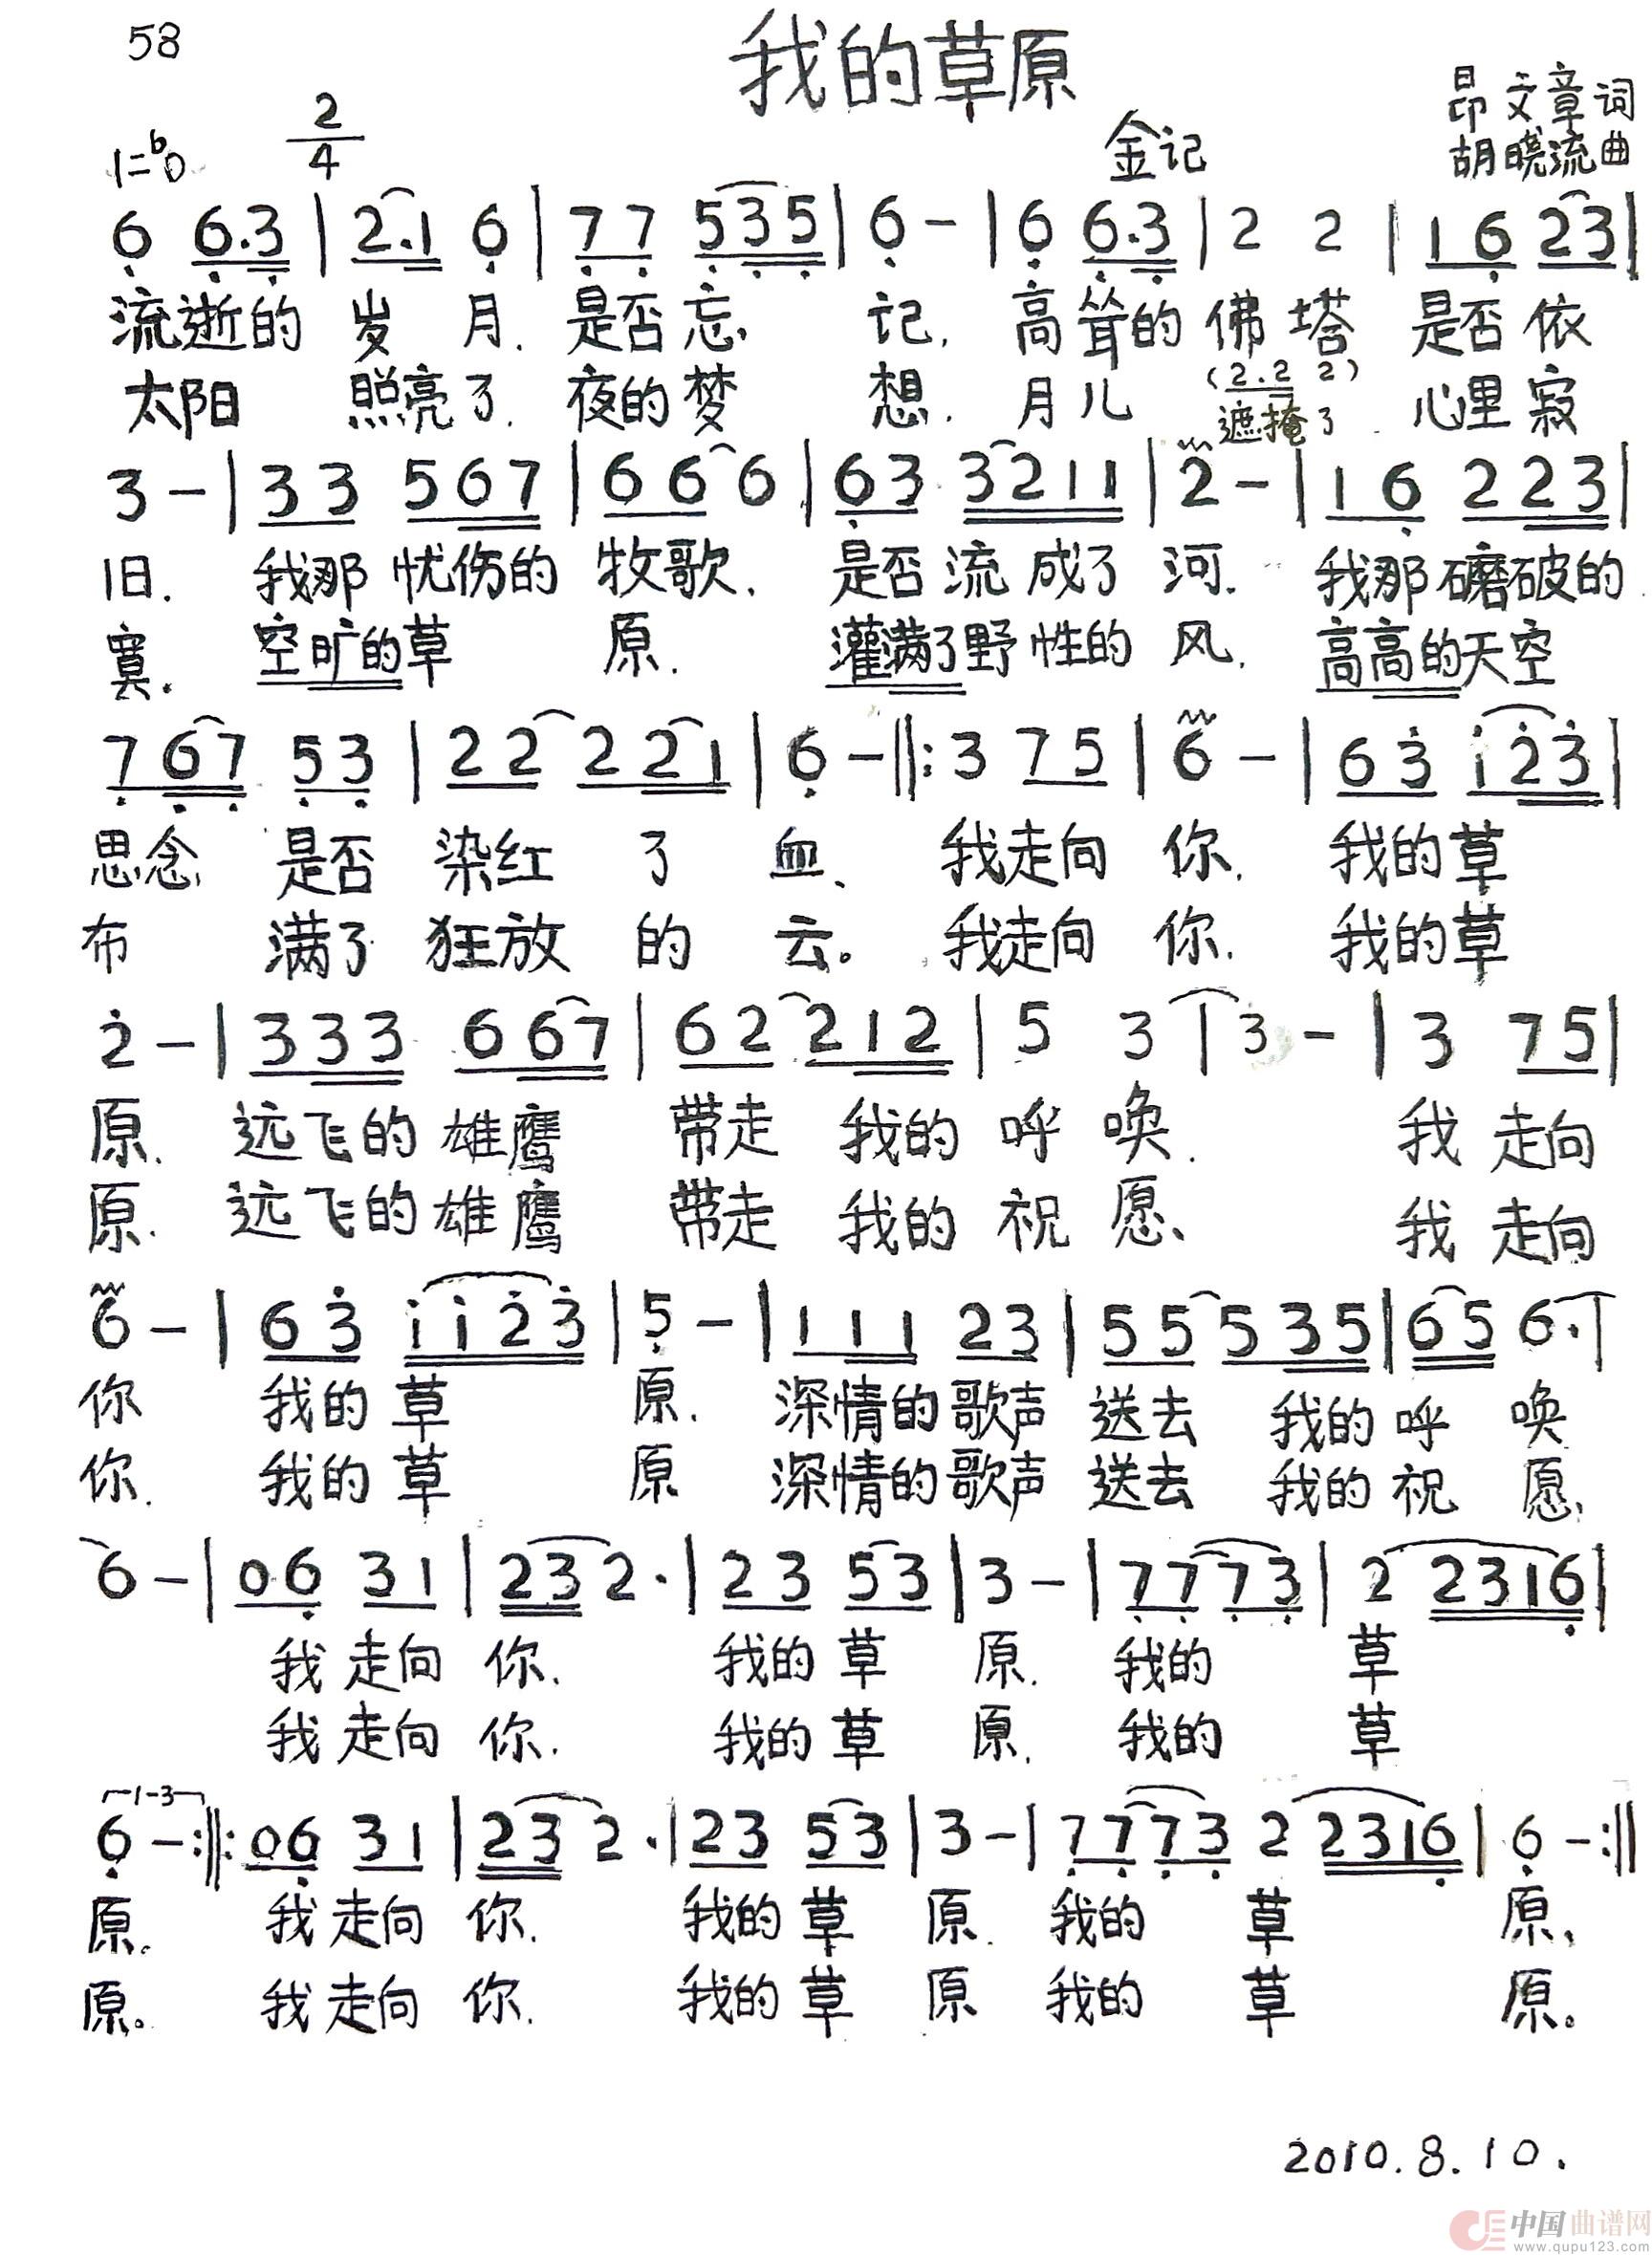 58
我的草原
昂文章词
1=ᵇD 2/4 金记 胡晓流曲
6 6.3 | 2.1 6 | 7 7 5 3 5 | 6 - | 6 6.3 | 2 2 | 1 6 2 3 |
流逝的 岁 月. 是否 忘 记, 高耸的 佛 塔 是否 依
(2.2 2)
太阳 照亮了. 夜的 梦 想. 月儿 遮掩了 心里 寂
3 - | 3 3 5 6 7 | 6 6 6 | 6 3 3 2 1 1 | 2 - | 1 6 2 2 3 |
旧. 我那 忧伤的 牧歌. 是否 流 成了 河. 我那 磨破的
寞. 空旷的草 原. 灌满了野 性的 风. 高高的天空
7 6 7 5 3 | 2 2 2 2 1 | 6 - ‖: 3 7 5 | 6 - | 6 3 1 2 3 |
思念 是否 染红 了 血、 我走向 你. 我的 草
布 满了 狂放 的 云。 我走向 你. 我的 草
2 - | 3 3 3 6 6 7 | 6 2 2 1 2 | 5 3 | 3 - | 3 7 5 |
原. 远飞的 雄鹰 带走 我的 呼 唤. 我 走向
原. 远飞的 雄鹰 带走 我的 祝 愿、 我 走向
6 - | 6 3 1 1 2 3 | 5 - | 1 1 1 2 3 | 5 5 5 3 5 | 6 5 6. |
你 我的 草 原. 深情的 歌声 送去 我的 呼 唤
你. 我的 草 原 深情的 歌声 送去 我的 祝 愿、
6 - | 0 6 3 1 | 2 3 2. | 2 3 5 3 | 3 - | 7 7 7 3 | 2 2 3 1 6 |
我 走向 你. 我的 草 原. 我的 草
我 走向 你. 我的 草 原. 我的 草
1-3
6 - :‖: 0 6 3 1 | 2 3 2. | 2 3 5 3 | 3 - | 7 7 7 3 2 2 3 1 6 | 6 - :‖
原. 我 走向 你. 我的 草 原. 我的 草 原、
原。 我 走向 你. 我的 草 原 我的 草 原。
2010.8.10.
中国曲谱网
www.qupu123.com